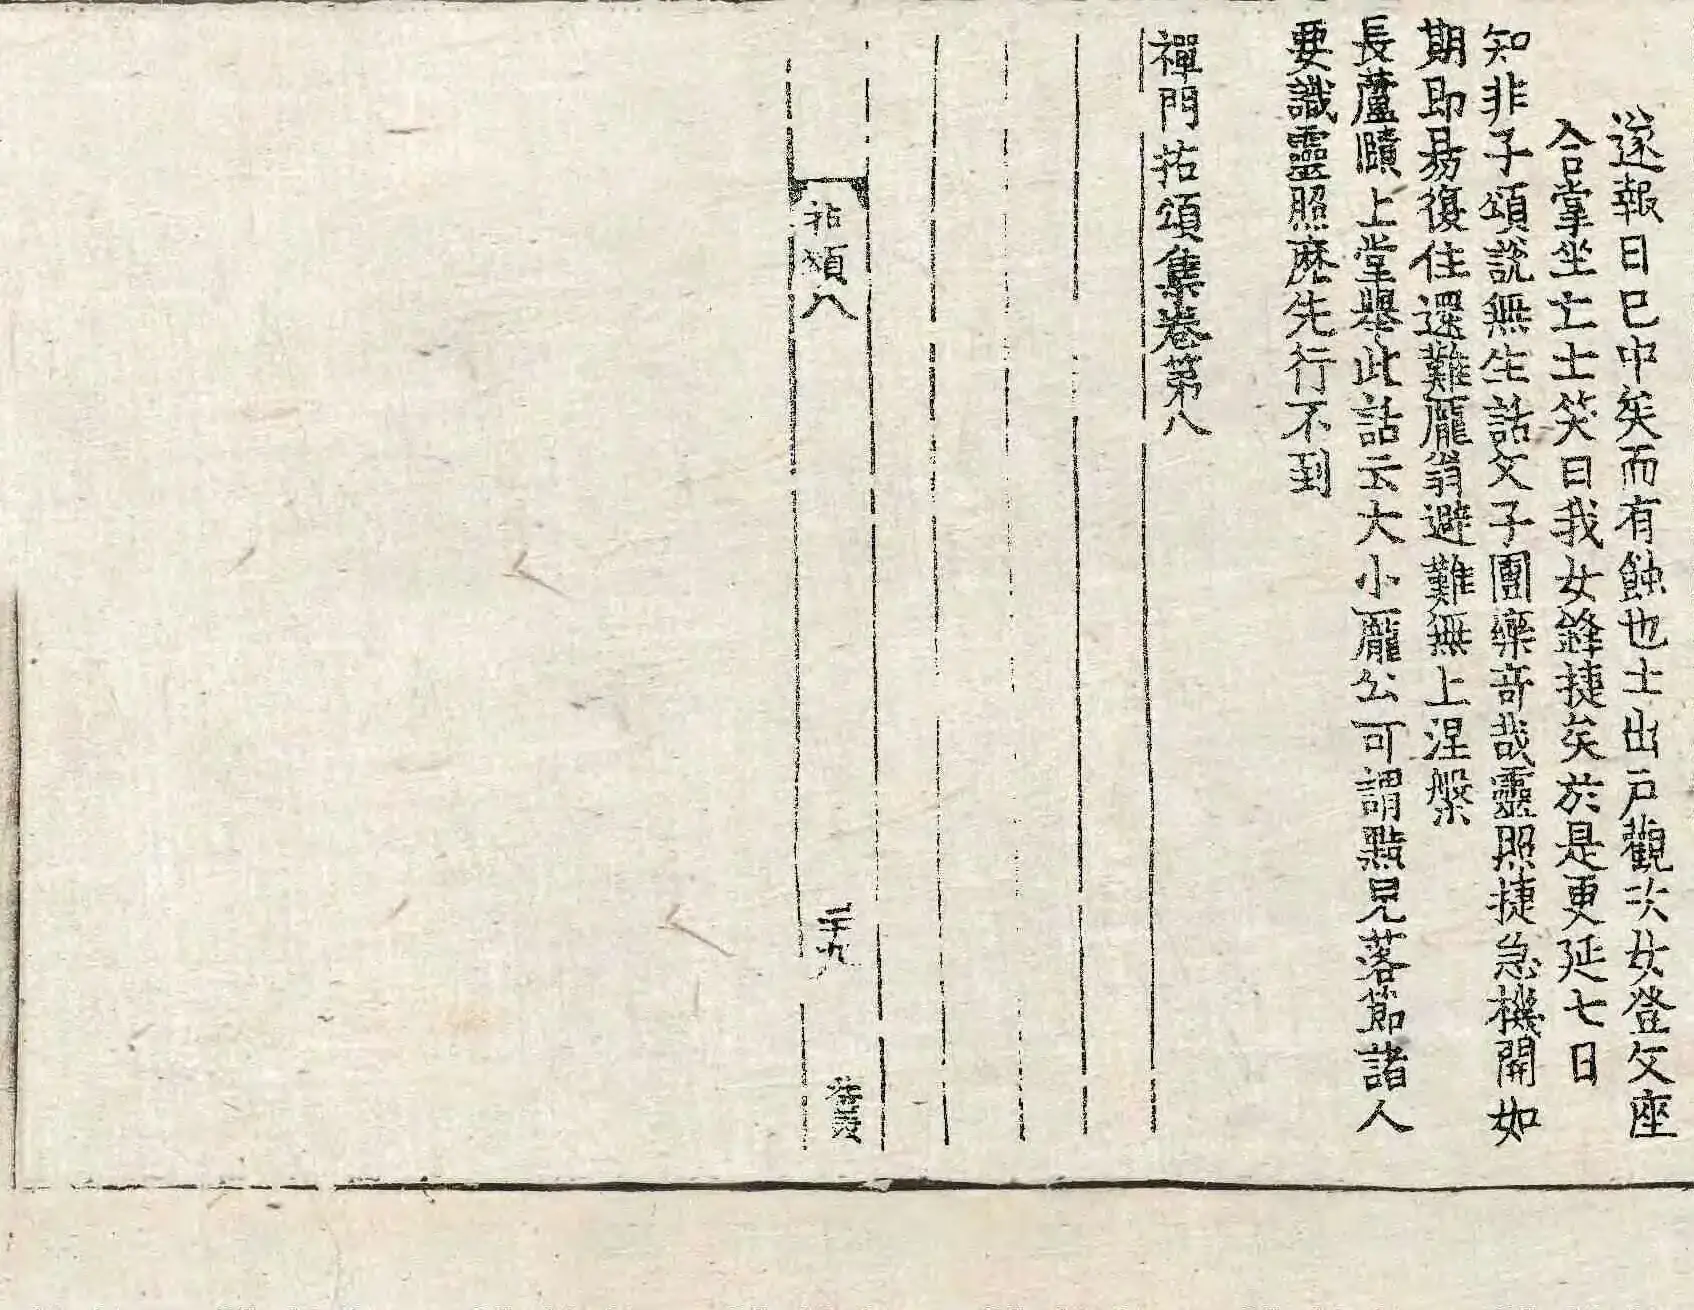 遂報日已中矣而有蝕也士出戶觀次女登父座
合掌坐亡士笑曰我女鋒捷矣於是更延七日
知非子頌說無生話父子團欒竒哉靈照捷急機開如
期即易復住還難龐翁避難無上涅槃
長蘆賾上堂舉此話云大小龐公可謂㸃見落節諸人
要識靈照麽先行不到
禪門拈頌集卷第八
拈頌八
二十九